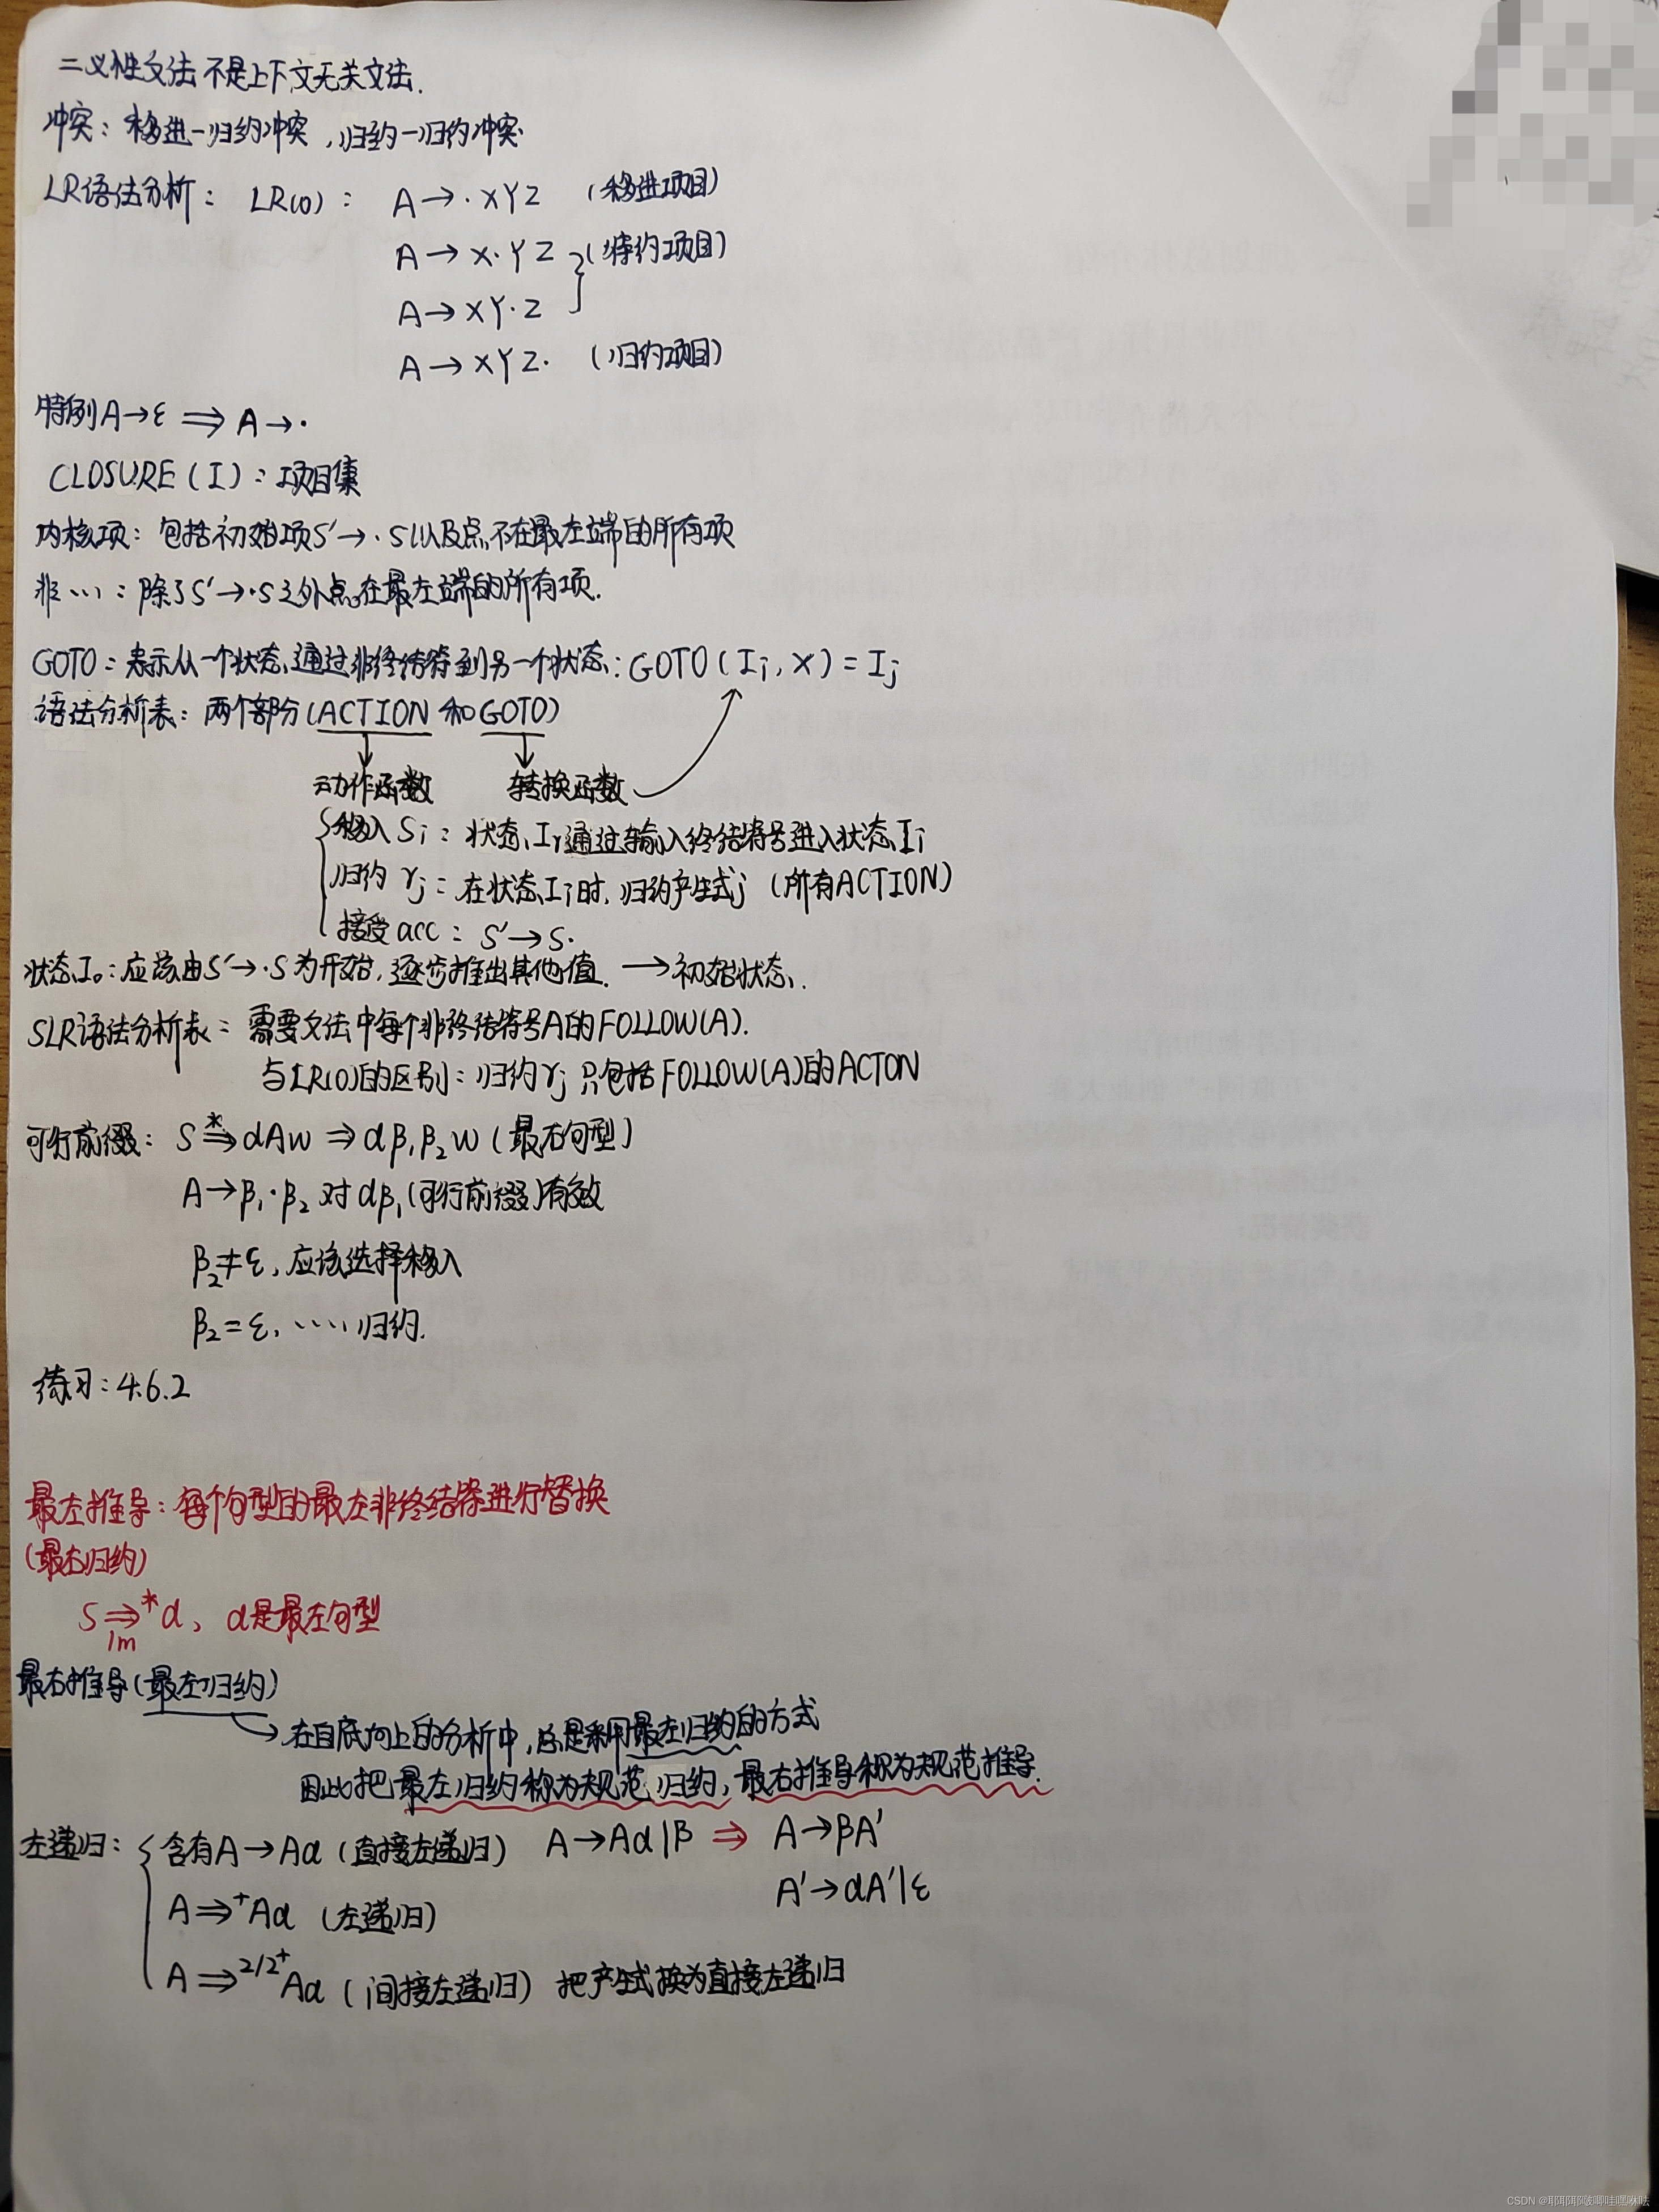 二义性文法不是上下文无关文法.
冲突：移进-归约冲突，归约-归约冲突.
LR语法分析： LR(0)： A→·XYZ （移进项目）
A→X·YZ （待约项目）
A→XY·Z
A→XYZ· （归约项目）
特例A→ε ⟹ A→·
CLOSURE(I)：项目集
内核项：包括初始项S'→·S以及点不在最左端的所有项
非…：除了S'→·S之外点在最左端的所有项.
GOTO：表示从一个状态通过非终结符到另一个状态：GOTO(Ii, X)=Ij
语法分析表：两个部分(ACTION和GOTO)
动作函数 转换函数
移入 Si：状态Ij通过输入终结符号进入状态Ii
归约 rj：在状态Ii时，归约产生式j （所有ACTION）
接受acc：S'→S·
状态I0：应该由S'→·S为开始，逐步推出其他值. →初始状态.
SLR语法分析表：需要文法中每个非终结符号A的FOLLOW(A).
与LR(0)的区别：归约rj只包括FOLLOW(A)的ACTON
可行前缀：S⇒*αAw⇒αβ1β2w（最右句型）
A→β1·β2对αβ1(可行前缀)有效
β2≠ε，应该选择移入
β2=ε，……归约.
练习：4.6.2
最左推导：每个句型的最左非终结符进行替换
(最右归约)
S⇒*lm α、α是最左句型
最右推导(最左归约)
在自底向上的分析中，总是采用最左归约的方式
因此把最左归约称为规范归约，最右推导称为规范推导.
左递归： 含有A→Aα（直接左递归） A→Aα|β ⇒ A→βA'
A'→αA'|ε
A⇒+Aα （左递归）
A⇒2/2+Aα（间接左递归）把产生式换为直接左递归